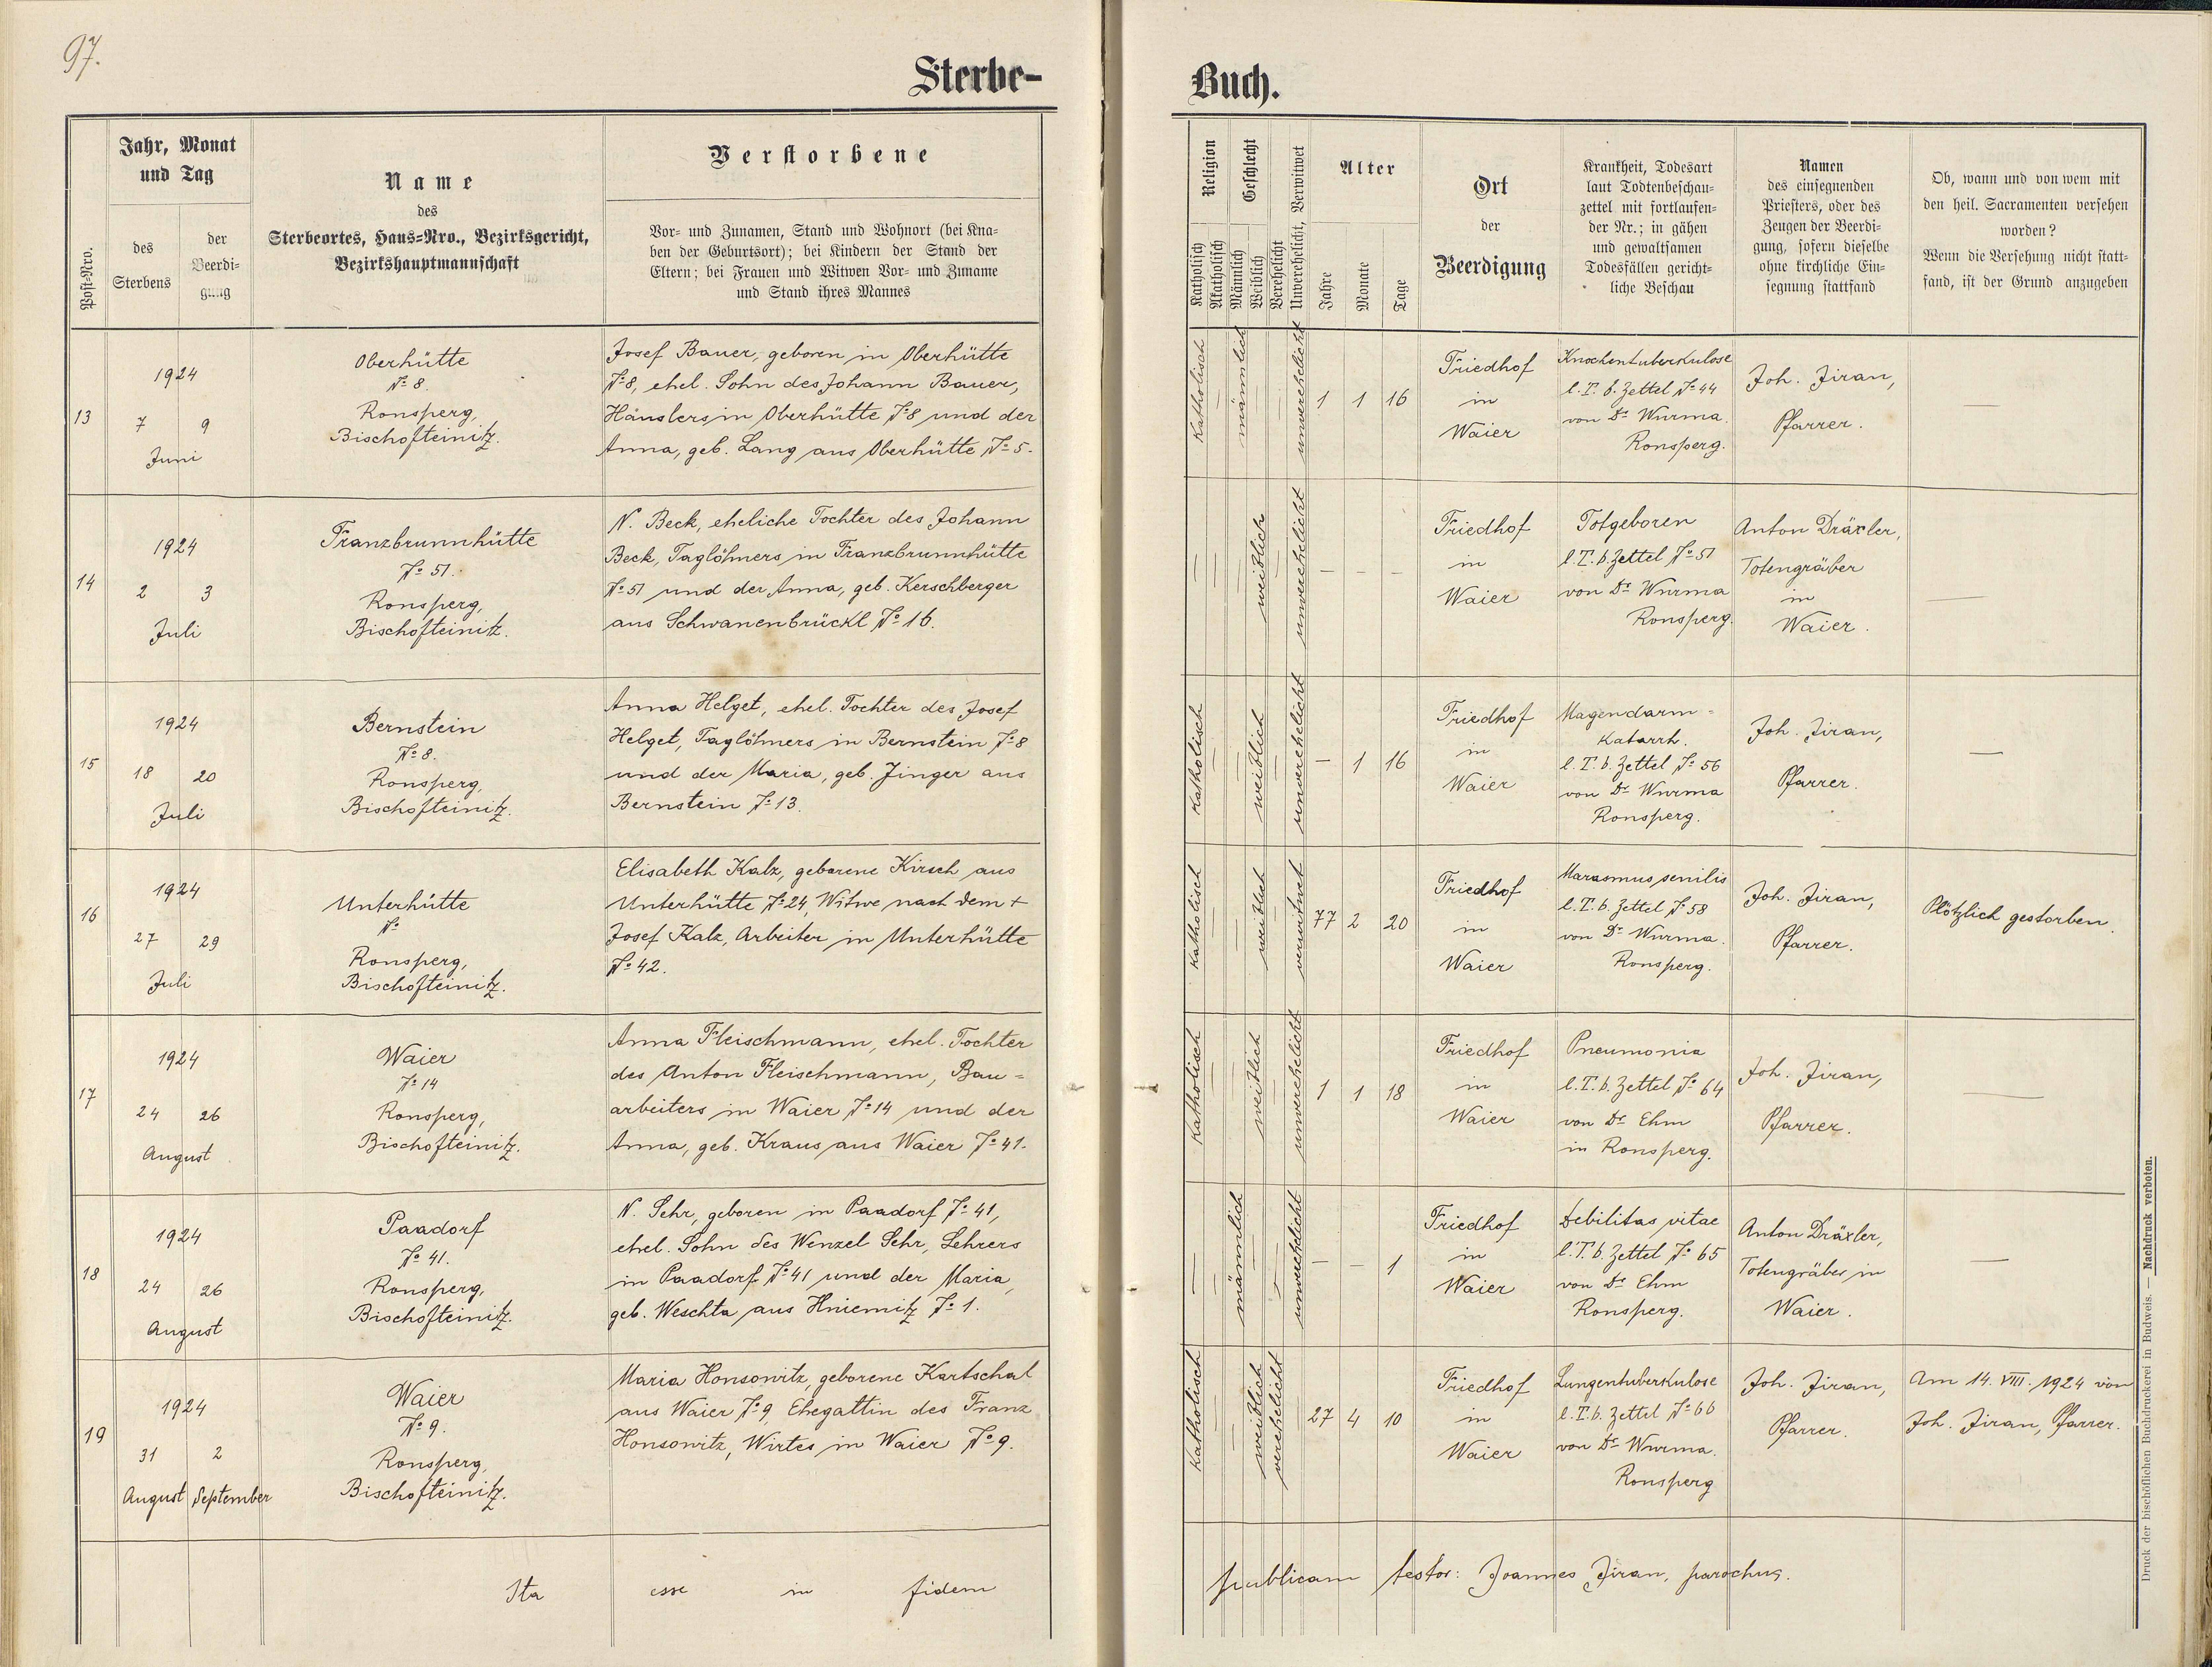 97.
Sterbe-
Buch.
Post-Nro.
Jahr, Monat
und Tag
des
Sterbens
der
Beerdi-
gung
Name
des
Sterbeortes, Haus-Nro., Bezirksgericht,
Bezirkshauptmannschaft
Verstorbene
Vor- und Zunamen, Stand und Wohnort (bei Kna-
ben der Geburtsort); bei Kindern der Stand der
Eltern; bei Frauen und Witwen Vor- und Zuname
und Stand ihres Mannes
Religion
Katholisch
Akatholisch
Geschlecht
Männlich
Weiblich
Verehelicht
Unverehelicht, Verwitwet
Alter
Jahre
Monate
Tage
Ort
der
Beerdigung
Krankheit, Todesart
laut Todtenbeschau-
zettel mit fortlaufen-
der Nr.; in gähen
und gewaltsamen
Todesfällen gericht-
liche Beschau
Namen
des einsegnenden
Priesters, oder des
Zeugen der Beerdi-
gung, sofern dieselbe
ohne kirchliche Ein-
segnung stattfand
Ob, wann und von wem mit
den heil. Sacramenten versehen
worden?
Wenn die Versehung nicht statt-
fand, ist der Grund anzugeben
13
1924
7 9
Juni
Oberhütte
No 8.
Ronsperg,
Bischofteinitz.
Josef Bauer, geboren in Oberhütte
No 8, ehel. Sohn des Johann Bauer,
Häuslers in Oberhütte No 8 und der
Anna, geb. Lang aus Oberhütte No 5.
Katholisch
—
männlich
—
—
unverehelicht
1 1 16
Friedhof
in
Waier
Knochentuberkulose
l. T. b. Zettel No 44
von Dr Wurma.
Ronsperg.
Joh. Jiran,
Pfarrer.
—
14
1924
2 3
Juli
Franzbrunnhütte
No 51.
Ronsperg,
Bischofteinitz.
N. Beck, eheliche Tochter des Johann
Beck, Taglöhners in Franzbrunnhütte
No 51 und der Anna, geb. Kerschberger
aus Schwanenbrückl No 16.
—
—
—
weiblich
—
unverehelicht
– – –
Friedhof
in
Waier
Totgeboren
l. T. b. Zettel No 51
von Dr Wurma
Ronsperg.
Anton Dräxler,
Totengräber
in
Waier.
—
15
1924
18 20
Juli
Bernstein
No 8.
Ronsperg,
Bischofteinitz.
Anna Helget, ehel. Tochter des Josef
Helget, Taglöhners in Bernstein No 8
und der Maria, geb. Jinger aus
Bernstein No 13.
Katholisch
—
—
weiblich
—
unverehelicht
– 1 16
Friedhof
in
Waier
Magendarm-
Katarrh.
l. T. b. Zettel No 56
von Dr Wurma
Ronsperg.
Joh. Jiran,
Pfarrer.
—
16
1924
27 29
Juli
Unterhütte
No
Ronsperg,
Bischofteinitz.
Elisabeth Kalz, geborene Kirsch aus
Unterhütte No 24, Witwe nach dem +
Josef Kalz, Arbeiter in Unterhütte
No 42.
Katholisch
—
—
weiblich
—
verwitwet
77 2 20
Friedhof
in
Waier
Marasmus senilis
l. T. b. Zettel No 58
von Dr Wurma.
Ronsperg.
Joh. Jiran,
Pfarrer.
Plötzlich gestorben.
17
1924
24 26
August
Waier
No 14
Ronsperg,
Bischofteinitz.
Anna Fleischmann, ehel. Tochter
des Anton Fleischmann, Bau-
arbeiters in Waier No 14 und der
Anna, geb. Kraus aus Waier No 41.
Katholisch
—
—
weiblich
—
unverehelicht
1 1 18
Friedhof
in
Waier
Pneumonia
l. T. b. Zettel No 64
von Dr Ehm
in Ronsperg.
Joh. Jiran,
Pfarrer.
—
18
1924
24 26
August
Paadorf
No 41.
Ronsperg,
Bischofteinitz.
N. Sehr, geboren in Paadorf No 41,
ehel. Sohn des Wenzel Sehr, Lehrers
in Paadorf No 41 und der Maria,
geb. Weschta aus Hniemitz No 1.
—
—
männlich
—
—
unverehelicht
– – 1
Friedhof
in
Waier
Debilitas vitae
l. T. b. Zettel No 65
von Dr Ehm
Ronsperg.
Anton Dräxler,
Totengräber in
Waier.
—
19
1924
31 2
August September
Waier
No 9.
Ronsperg,
Bischofteinitz.
Maria Honsowitz, geborene Kartschal
aus Waier No 9, Ehegattin des Franz
Honsowitz, Wirtes in Waier No 9.
Katholisch
—
—
weiblich
verehelicht
27 4 10
Friedhof
in
Waier
Lungentuberkulose
l. T. b. Zettel No 66
von Dr Wurma.
Ronsperg
Joh. Jiran,
Pfarrer.
Am 14. VIII. 1924 von
Joh. Jiran, Pfarrer.
Ita esse in fidem
publicam testor: Joannes Jiran, parochus.
Druck der bischöflichen Buchdruckerei in Budweis. — Nachdruck verboten.